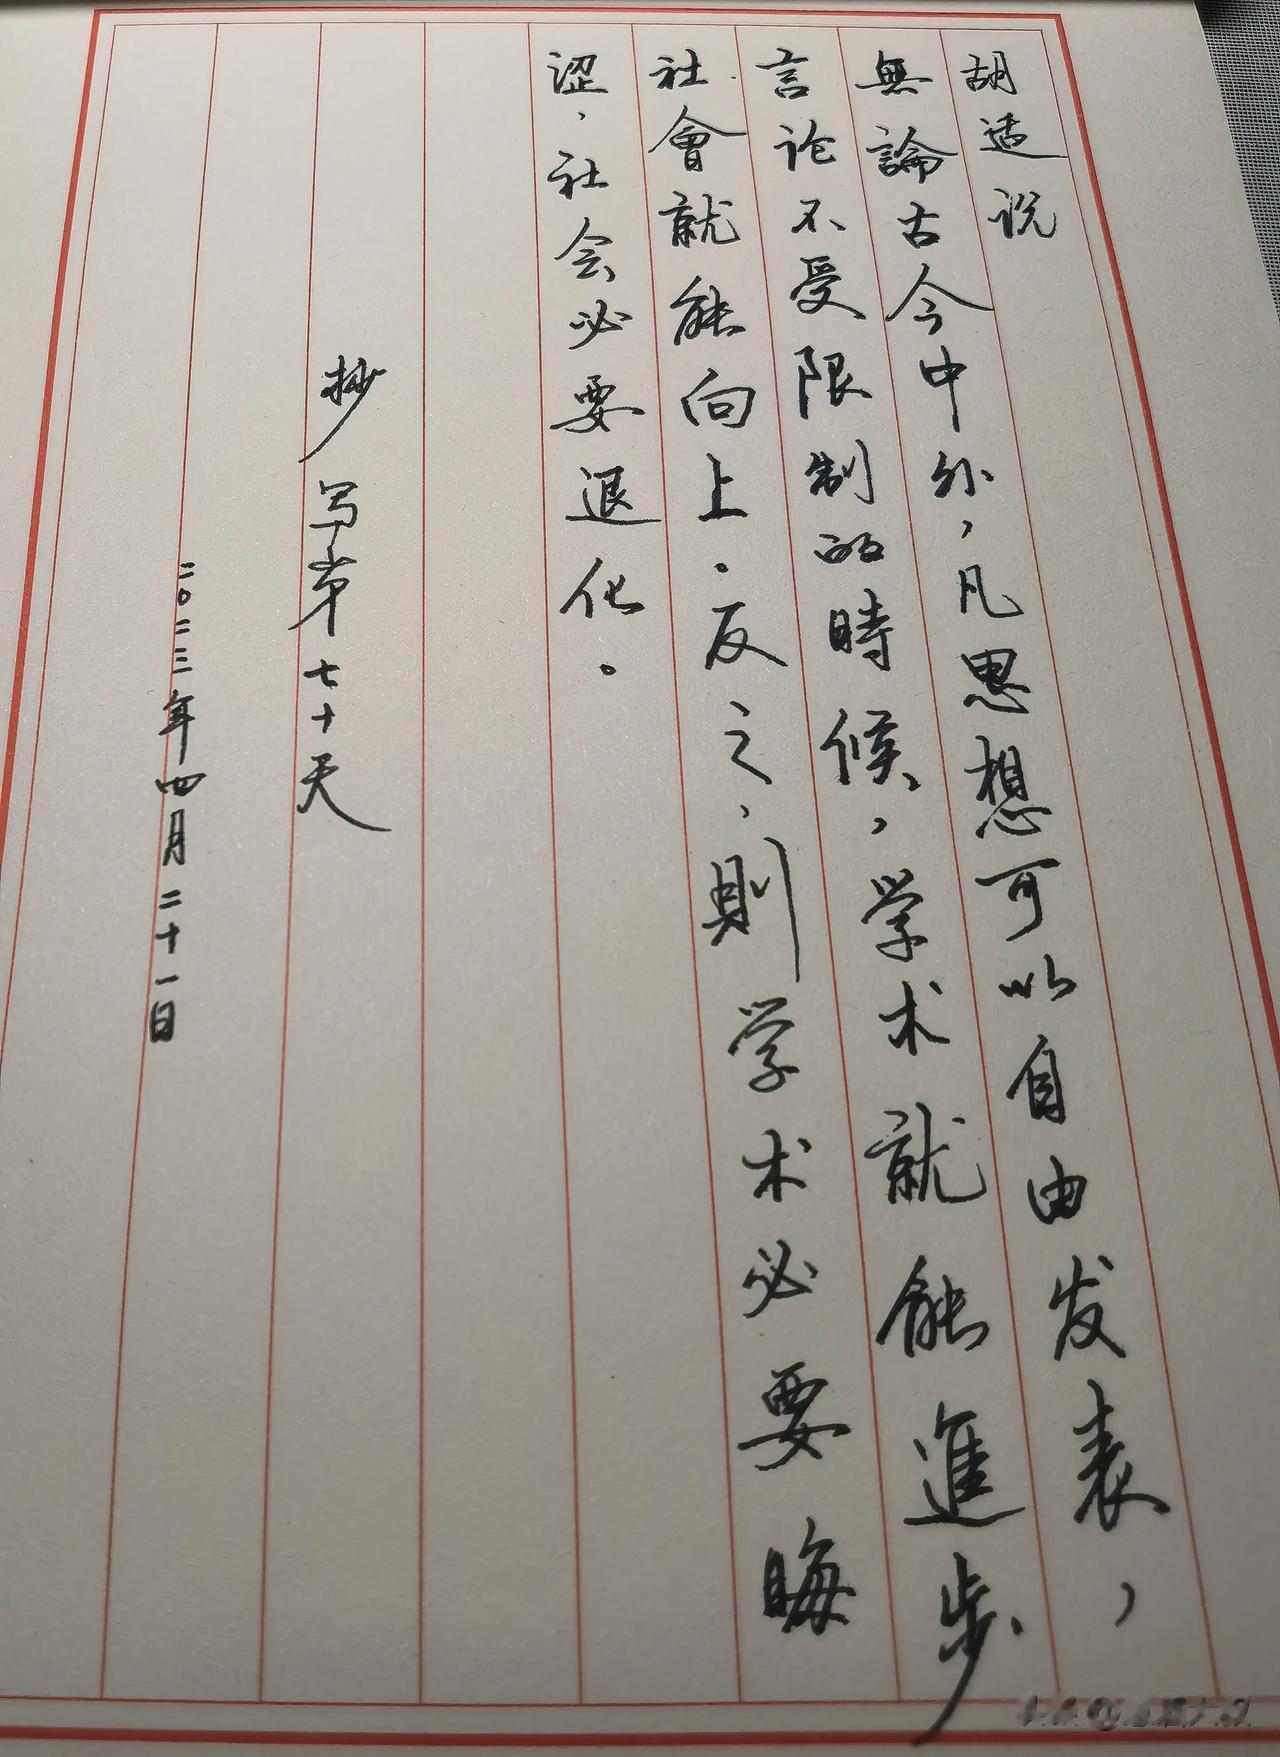 胡适说
無論古今中外，凡思想可以自由发表，
言论不受限制的時候，学术就能進步
社會就能向上。反之，則学术必要晦
涩，社会必要退化。
抄写第七十天
二〇二三年四月二十一日